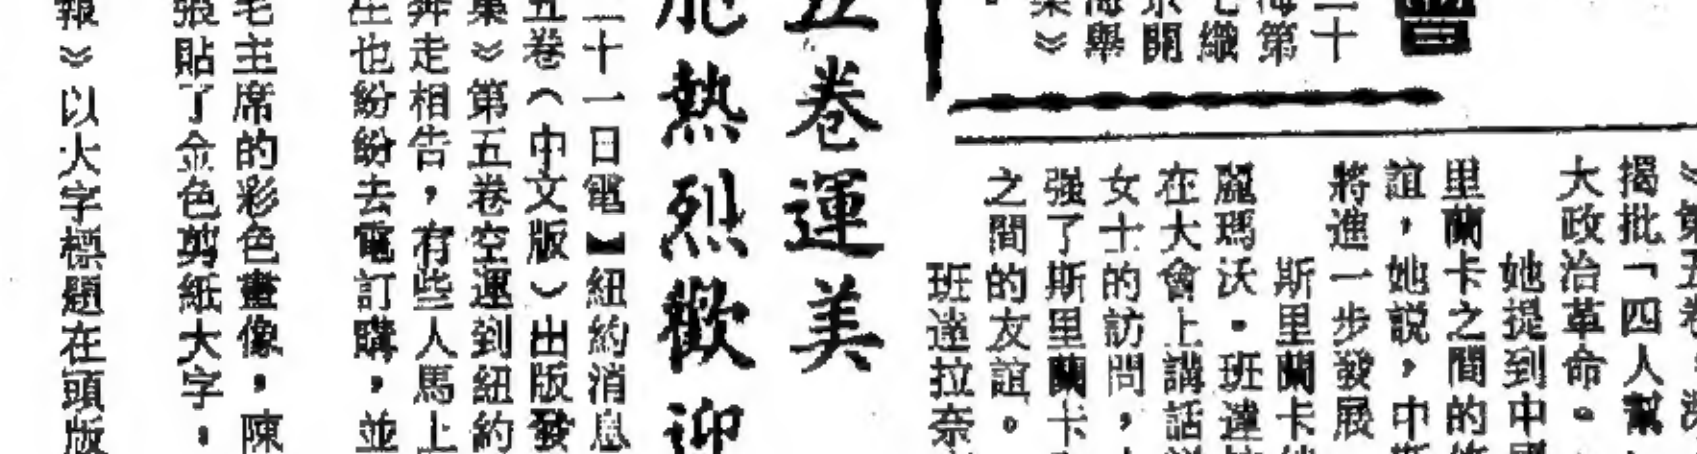 會
十
第
織
開
舉
》
》第五卷，
揭批「四人幫
大政治革命。
她提到中國
里蘭卡之間的
誼，她説，中斯
將進一步發展
斯里蘭卡
麗瑪沃·班達
在大會上講話
女士的訪問，
强了斯里蘭卡
之間的友誼。
班達拉奈
五卷運美
胞熱烈歡迎
二十一日電】紐約消息
五卷（中文版）出版發
集》第五卷空運到紐約
奔走相告，有些人馬上
生也紛紛去電訂購，並
毛主席的彩色畫像，陳
張貼了金色剪紙大字，
報》以大字標題在頭版